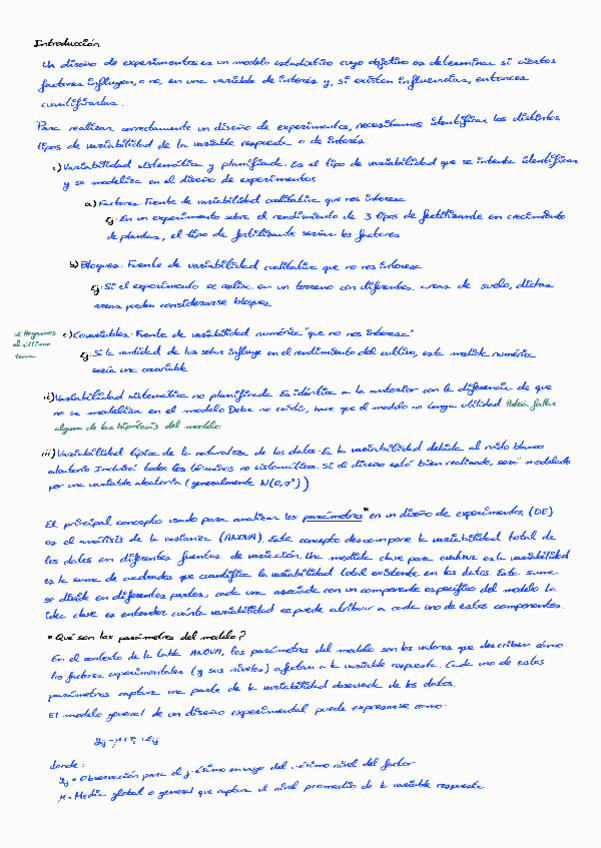 Introducción
Un diseño de experimentos es un modelo estadístico cuyo objetivo es determinar si ciertos
factores influyen, o no, en una variable de interés y, si existen influencias, entonces
cuantificarlas.
Para realizar correctamente un diseño de experimentos, necesitamos identificar los distintos
tipos de variabilidad de la variable respuesta o de interés.
i) Variabilidad sistemática y planificada. Es el tipo de variabilidad que se intenta identificar
y se modeliza en el diseño de experimentos
a) Factores. Fuente de variabilidad cualitativa que nos interesa.
Ej: En un experimento sobre el rendimiento de 3 tipos de fertilizante en crecimiento
de plantas, el tipo de fertilizante serían los factores
b) Bloques. Fuente de variabilidad cualitativa que no nos interesa
Ej: Si el experimento se realiza en un terreno con diferentes areas de suelo, dichas
areas pueden considerarse bloques
se
al último
tema
c) Covariables. Fuente de variabilidad numérica "que no nos interesa"
Ej: Si la cantidad de luz solar influye en el rendimiento del cultivo, esta medida numérica
sería una covariable
ii) Variabilidad sistemática no planificada. Es idéntica a la anterior con la diferencia de que
no se modeliza en el modelo. Debe no existir, hace que el modelo no tenga utilidad. Podría fallar
alguna de las hipótesis del modelo
iii) Variabilidad típica de la naturaleza de los datos. Es la variabilidad debida al ruido blanco
aleatorio. Incluirá todos los términos no sistemáticos. Si el diseño está bien realizado, será modelado
por una variable aleatoria (generalmente N(0,σ²))
El principal concepto usado para analizar los parámetros* en un diseño de experimentos (DE)
es el análisis de la varianza (ANOVA). Este concepto descompone la variabilidad total de
los datos en diferentes fuentes de variación. Una medida clave para evaluar esta variabilidad
es la suma de cuadrados que cuantifica la variabilidad total existente en los datos. Esta suma
se divide en diferentes partes, cada una asociada con un componente específico del modelo. La
idea clave es entender cuánta variabilidad se puede atribuir a cada uno de estos componentes.
* Qué son los parámetros del modelo?
En el contexto de la tabla ANOVA, los parámetros del modelo son los valores que describen cómo
los factores experimentales (y sus niveles) afectan a la variable respuesta. Cada uno de estos
parámetros captura una parte de la variabilidad observada de los datos.
El modelo general de un diseño experimental puede expresarse como:
yij = μ + τi + εij
donde:
yij = Observación para el j-ésimo ensayo del i-ésimo nivel del factor
μ = Media global o general que captura el nivel promedio de la variable respuesta